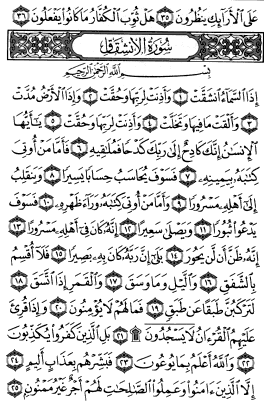 عَلَى ٱلْأَرَآئِكِ يَنظُرُونَ ٣٥ هَلْ ثُوِّبَ ٱلْكُفَّارُ مَا كَانُوا۟ يَفْعَلُونَ ٣٦
سُورَةُ الانشِقَاقِ
بِسْمِ ٱللَّهِ ٱلرَّحْمَٰنِ ٱلرَّحِيمِ
إِذَا ٱلسَّمَآءُ ٱنشَقَّتْ ١ وَأَذِنَتْ لِرَبِّهَا وَحُقَّتْ ٢ وَإِذَا ٱلْأَرْضُ مُدَّتْ
٣ وَأَلْقَتْ مَا فِيهَا وَتَخَلَّتْ ٤ وَأَذِنَتْ لِرَبِّهَا وَحُقَّتْ ٥ يَٰٓأَيُّهَا
ٱلْإِنسَٰنُ إِنَّكَ كَادِحٌ إِلَىٰ رَبِّكَ كَدْحًا فَمُلَٰقِيهِ ٦ فَأَمَّا مَنْ أُوتِىَ
كِتَٰبَهُۥ بِيَمِينِهِۦ ٧ فَسَوْفَ يُحَاسَبُ حِسَابًا يَسِيرًا ٨ وَيَنقَلِبُ
إِلَىٰٓ أَهْلِهِۦ مَسْرُورًا ٩ وَأَمَّا مَنْ أُوتِىَ كِتَٰبَهُۥ وَرَآءَ ظَهْرِهِۦ ١٠ فَسَوْفَ
يَدْعُوا۟ ثُبُورًا ١١ وَيَصْلَىٰ سَعِيرًا ١٢ إِنَّهُۥ كَانَ فِىٓ أَهْلِهِۦ مَسْرُورًا ١٣
إِنَّهُۥ ظَنَّ أَن لَّن يَحُورَ ١٤ بَلَىٰٓ إِنَّ رَبَّهُۥ كَانَ بِهِۦ بَصِيرًا ١٥ فَلَآ أُقْسِمُ
بِٱلشَّفَقِ ١٦ وَٱلَّيْلِ وَمَا وَسَقَ ١٧ وَٱلْقَمَرِ إِذَا ٱتَّسَقَ ١٨
لَتَرْكَبُنَّ طَبَقًا عَن طَبَقٍ ١٩ فَمَا لَهُمْ لَا يُؤْمِنُونَ ٢٠ وَإِذَا قُرِئَ
عَلَيْهِمُ ٱلْقُرْءَانُ لَا يَسْجُدُونَ ۩ ٢١ بَلِ ٱلَّذِينَ كَفَرُوا۟ يُكَذِّبُونَ
٢٢ وَٱللَّهُ أَعْلَمُ بِمَا يُوعُونَ ٢٣ فَبَشِّرْهُم بِعَذَابٍ أَلِيمٍ ٢٤
إِلَّا ٱلَّذِينَ ءَامَنُوا۟ وَعَمِلُوا۟ ٱلصَّٰلِحَٰتِ لَهُمْ أَجْرٌ غَيْرُ مَمْنُونٍۭ ٢٥